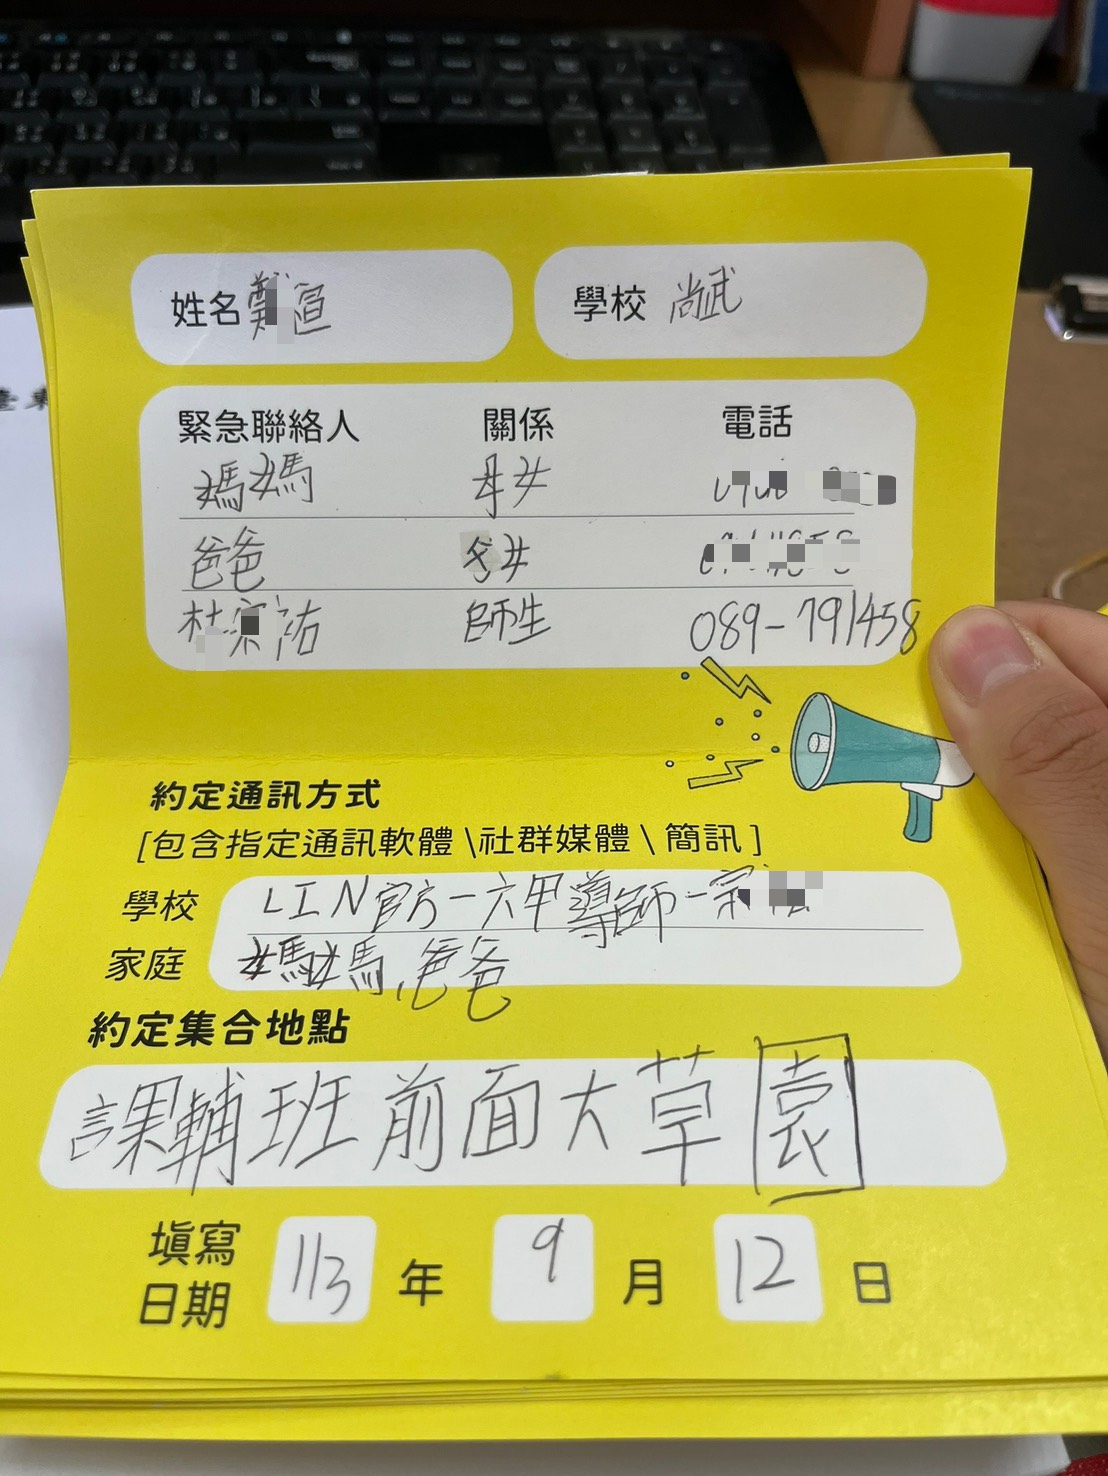 姓名 鄭 逼
學校 尚武
緊急聯絡人 關係 電話
媽媽 母女
爸爸 父女
杜 祐 師生 089-791458
約定通訊方式
[包含指定通訊軟體\社群媒體\簡訊]
學校 LIN官方-六甲導師-宗
家庭 媽媽,爸爸
約定集合地點
課輔班前面大草園
填寫日期 113 年 9 月 12 日